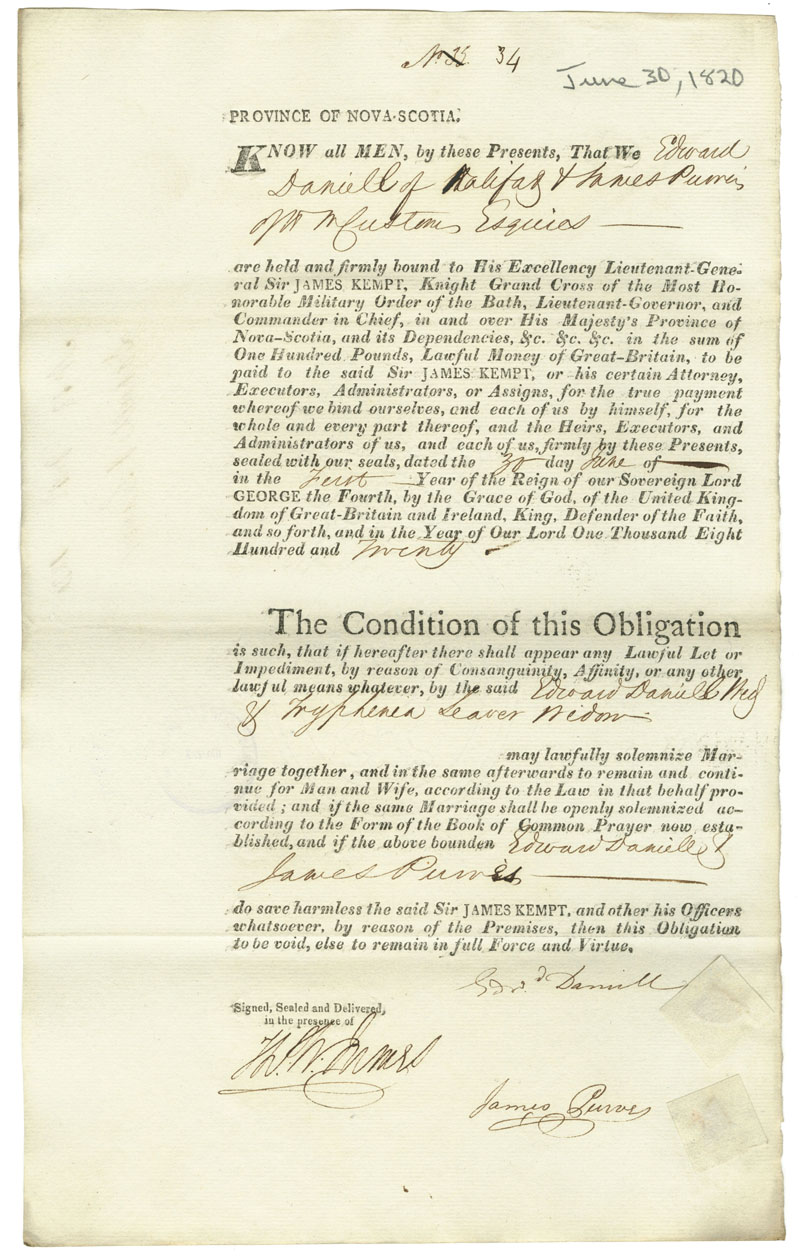 No. 33. 34
June 30, 1820
PROVINCE OF NOVA-SCOTIA.
KNOW all MEN, by these Presents, That We Edward
Daniell of Halifax & James Purves
of Customs Esquires
are held and firmly bound to His Excellency Lieutenant-Gene-
ral Sir JAMES KEMPT, Knight Grand Cross of the Most Ho-
norable Military Order of the Bath, Lieutenant-Governor, and
Commander in Chief, in and over His Majesty's Province of
Nova-Scotia, and its Dependencies, &c. &c. &c. in the sum of
One Hundred Pounds, Lawful Money of Great-Britain, to be
paid to the said Sir JAMES KEMPT, or his certain Attorney,
Executors, Administrators, or Assigns, for the true payment
whereof we bind ourselves, and each of us by himself, for the
whole and every part thereof, and the Heirs, Executors, and
Administrators of us, and each of us, firmly by these Presents,
sealed with our seals, dated the 30 day June of
in the First Year of the Reign of our Sovereign Lord
GEORGE the Fourth, by the Grace of God, of the United King-
dom of Great-Britain and Ireland, King, Defender of the Faith,
and so forth, and in the Year of Our Lord One Thousand Eight
Hundred and Twenty
The Condition of this Obligation
is such, that if hereafter there shall appear any Lawful Let or
Impediment, by reason of Consanguinity, Affinity, or any other
lawful means whatever, by the said Edward Daniell Wid
& Tryphenia Leaver Widow
may lawfully solemnize Mar-
riage together, and in the same afterwards to remain and conti-
nue for Man and Wife, according to the Law in that behalf pro-
vided; and if the same Marriage shall be openly solemnized ac-
cording to the Form of the Book of Common Prayer now esta-
blished, and if the above bounden Edward Daniell &
James Purves
do save harmless the said Sir JAMES KEMPT, and other his Officers
whatsoever, by reason of the Premises, then this Obligation
to be void, else to remain in full Force and Virtue.
Edwd Daniell
Signed, Sealed and Delivered,
in the presence of
James Purves